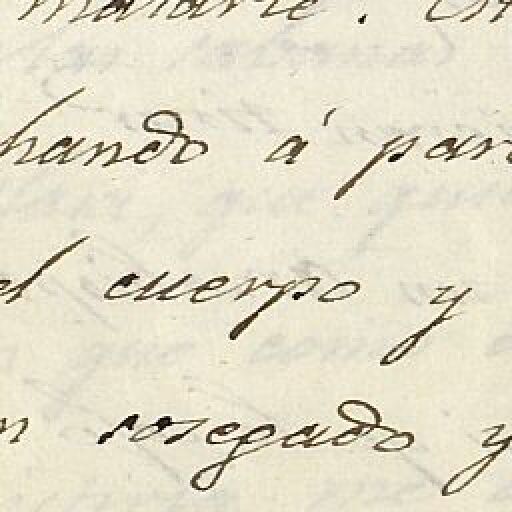 matarle.
hando á par
el cuerpo y
n sosegado y